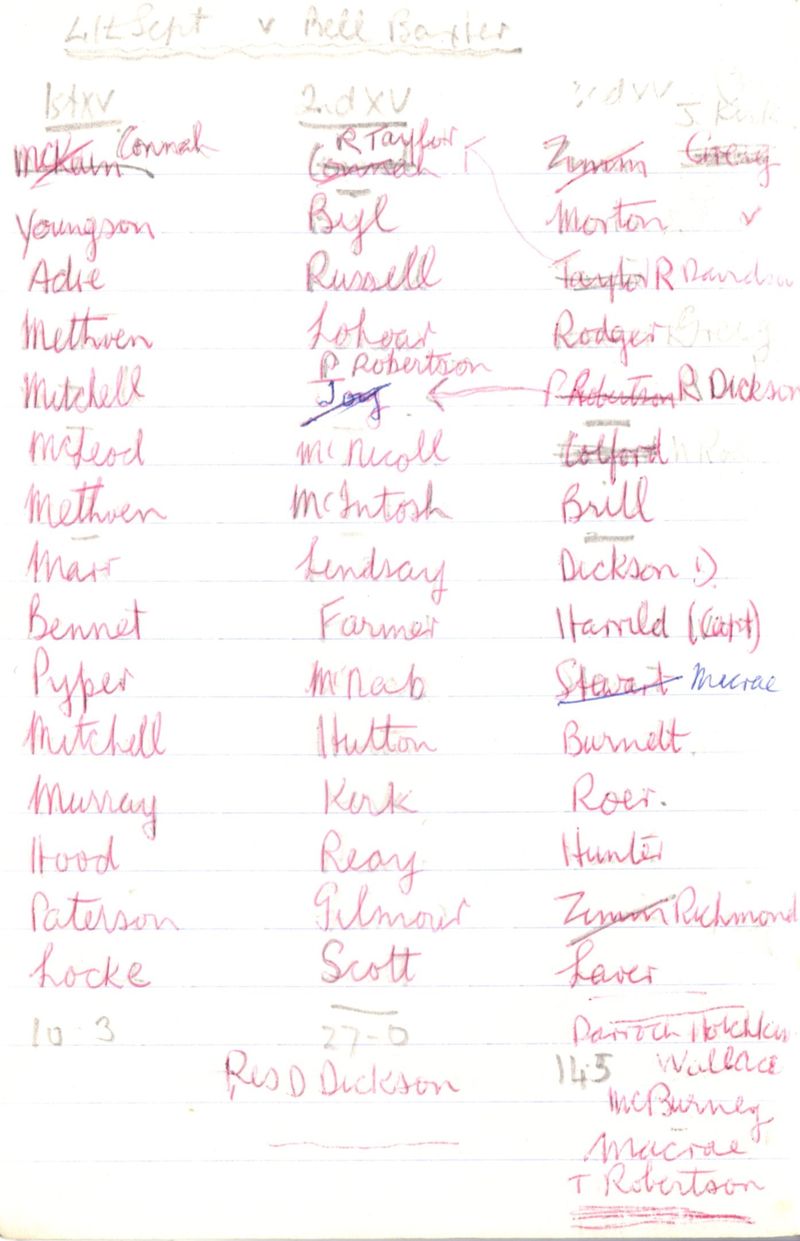 4th Sept v Bell Baxter
1st XV 2nd XV 3rd XV
J. Kirk
McKean Connah R Taylor Connah Zimm Greeg
Youngson Byl Morton v
Adie Russell Taylor R Davidson
Methven Lohoar Rodger Greig
P Robertson
Mitchell Joy P Robertson R Dickson
McLeod McNicoll Colford
Methven McIntosh Brill
Marr Lindsay Dickson D
Bennet Farmer Harrild (Capt)
Pyper McNab Stewart Macrae
Mitchell Hutton Burnett.
Murray Kerk Roer.
Hood Reay Hunter
Paterson Gilmour Zimm Richmond
Locke Scott Laver
10 3 27-0 Darroch
Res D Dickson 14 5 Wallace
McBurney
Macrae
T Robertson